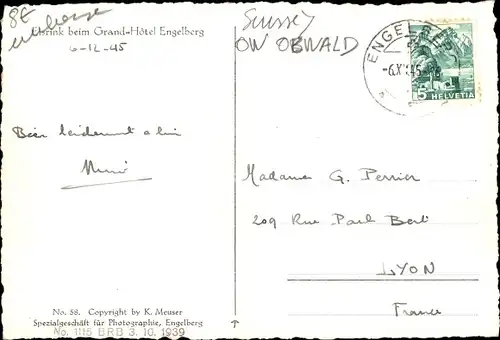 8€
Suisse
OW OBWALD
Eisrink beim Grand-Hôtel Engelberg
6-12-45
ENGELBERG
-6.XII.45-
5 HELVETIA
Bien
Madame G. Perrier
209 Rue Paul Bert
LYON
France
No. 58. Copyright by K. Meuser
Spezialgeschäft für Photographie, Engelberg
No. 1115 BRB 3. 10. 1939